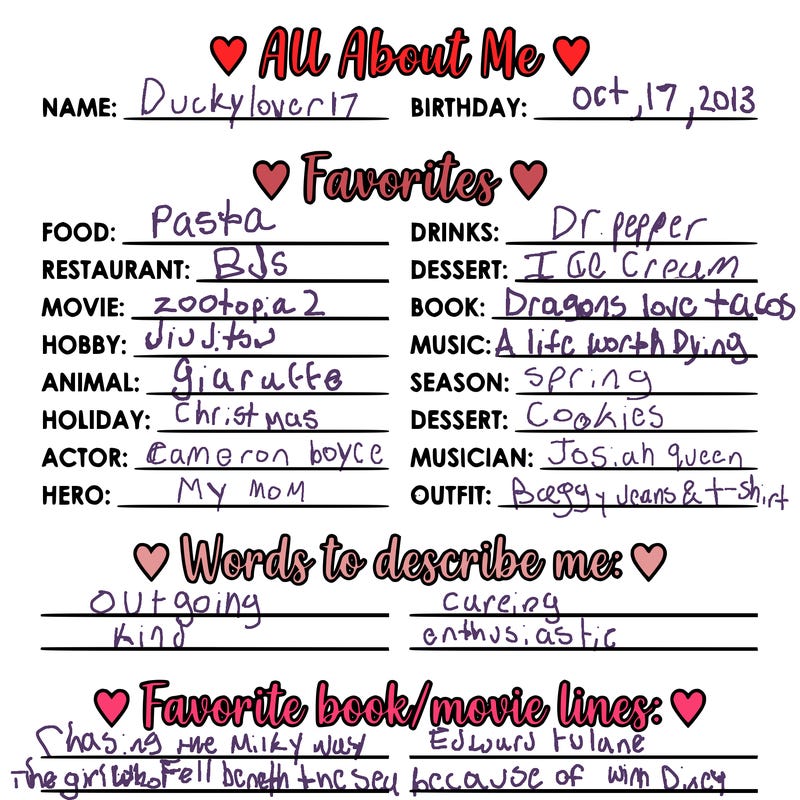 All About Me
NAME: Duckylover17 BIRTHDAY: Oct,17,2013
Favorites
FOOD: Pasta DRINKS: Dr.pepper
RESTAURANT: BJS DESSERT: ICe Cream
MOVIE: zootopia 2 BOOK: Dragons love tacos
HOBBY: JiuJitsu MUSIC: A life worth Dying
ANIMAL: giaraffe SEASON: spring
HOLIDAY: Christmas DESSERT: Cookies
ACTOR: Cameron boyce MUSICIAN: Josiah queen
HERO: My MOM OUTFIT: Baggy Jeans & t-shirt
Words to describe me:
outgoing careing
kind enthusiastic
Favorite book/movie lines:
Chasing the Milky Way Edward tulane
The girl who Fell beneth the sea because of winn Dixey